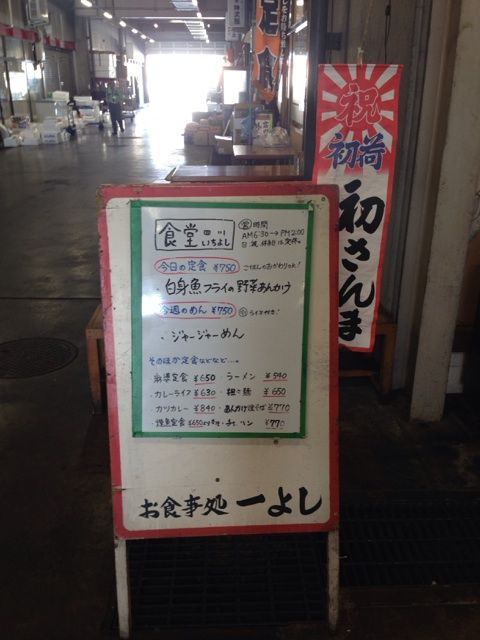 食堂 いちよし
営 時間
AM6:30→PM2:00
今日の定食 ¥750
ごはんのおかわりOK!
・白身魚フライの野菜あんかけ
今週のめん ¥750
ライス付き!
・ジャージャーめん
そのほか定食などなど…。
¥650
・ラーメン ¥540
・カレーライス ¥630
・担々麺 ¥650
・カツカレー ¥840
・あんかけ焼そば ¥770
・焼魚定食 ¥650より
¥770
お食事処 一よし
祝
初荷
初さんま
定食